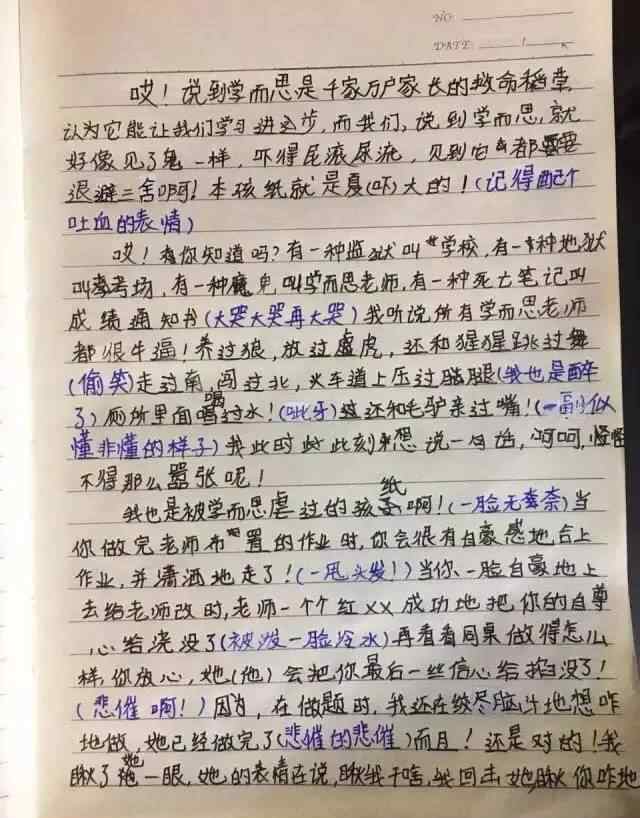 NO.
DATE.
哎！说到学而思是千家万户家长的救命稻草，
认为它能让我们学习进步，而我们，说到学而思，就
好像见了鬼一样，吓得屁滚尿流，见到它都要
退避三舍啊！本孩纸就是夏(吓)大的！(记得配个
吐血的表情)
哎！你知道吗？有一种监狱叫学校，有一种地狱
叫考场，有一种魔鬼叫学而思老师，有一种死亡笔记叫
成绩通知书(大哭大哭再大哭)我听说所有学而思老师
都很牛逼！养过狼，放过虎，还和猩猩跳过舞
(偷笑)走过南，闯过北，火车道上压过腿(我也是醉
了)厕所里面喝过水！(呲牙)还和毛驴亲过嘴！(一副似
懂非懂的样子)我此时此刻想说一句话，呵呵，怪
不得那么嚣张呢！
我也是被学而思虐过的孩纸啊！(一脸无奈)当
你做完老师布置的作业时，你会很有自豪感地合上
作业，并潇洒地走了！(一甩头发！)当你一脸自豪地上
去给老师改时，老师一个个红××成功地把你的自尊
心给浇没了(被泼一脸冷水)再看看同桌做得怎么
样，你放心，她(他)会把你最后一些信心给掐没了！
(悲催啊！)因为，在做题时，我还在绞尽脑汁地想咋
地做，她已经做完了(悲催的悲催)而且！还是对的！我
瞅了她一眼，她的表情在说，瞅我干啥，我回击她，瞅你咋地